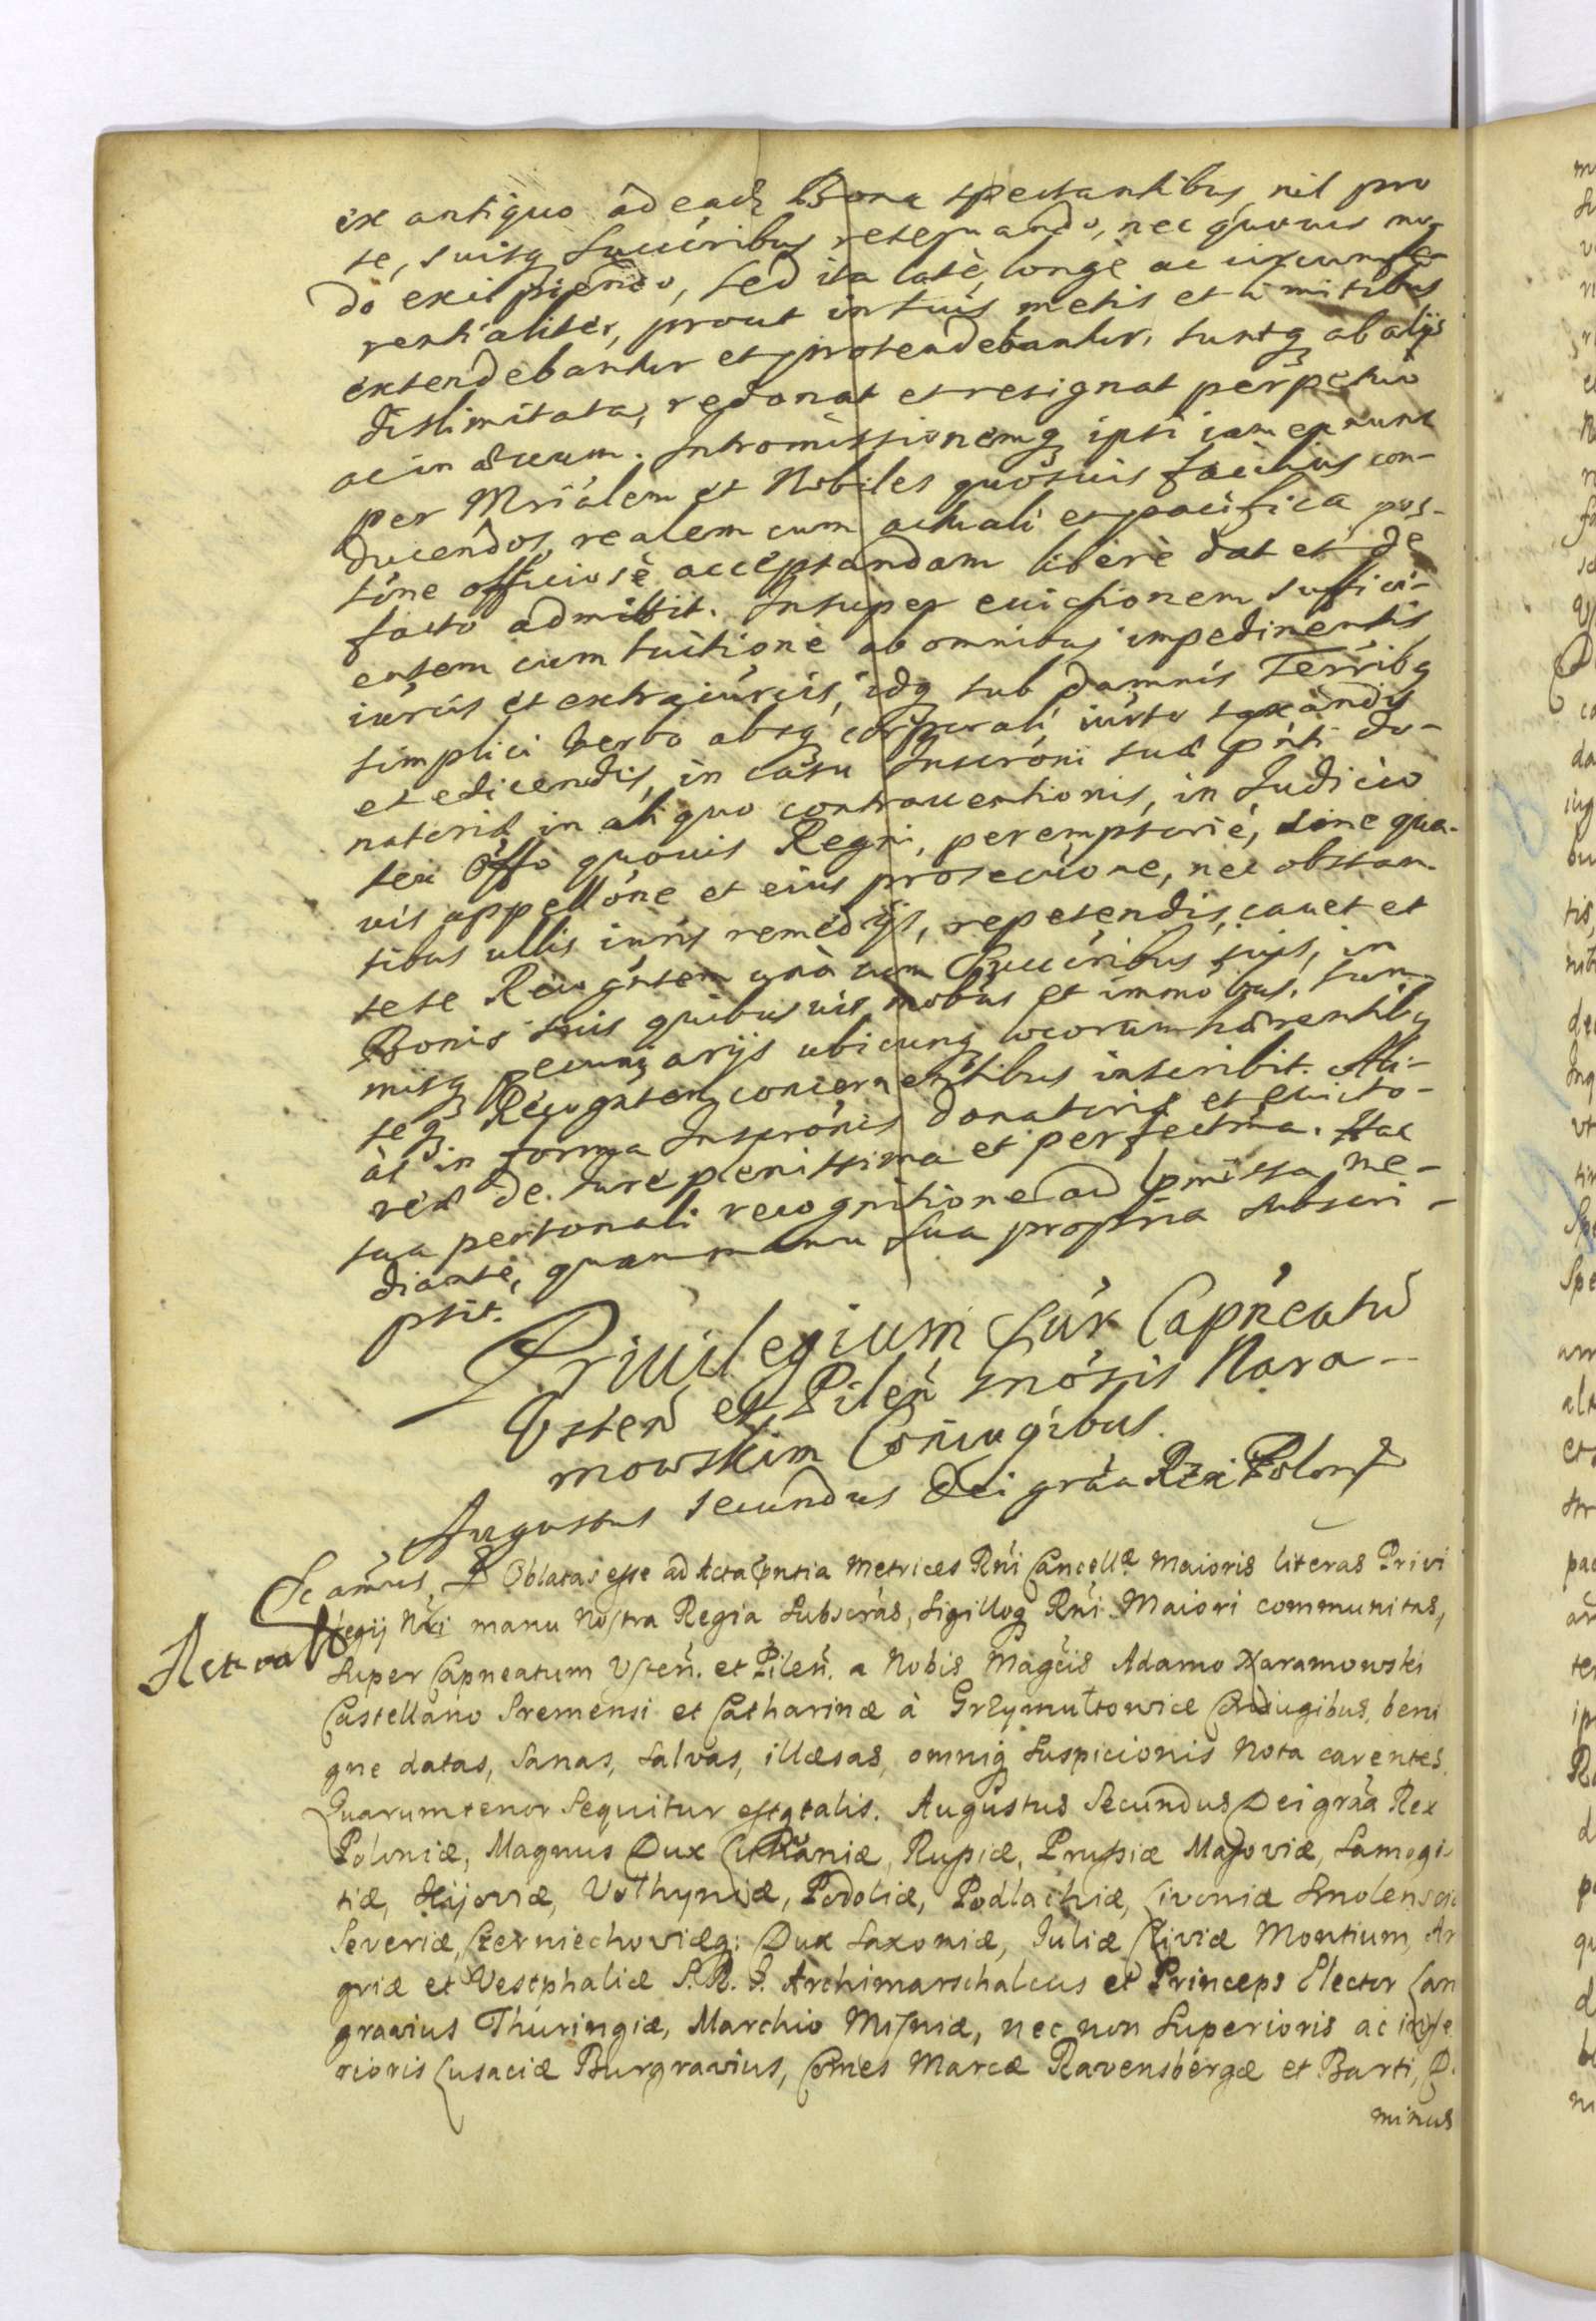 ex antiquo ad eadē Bona spectantibus, nil pro
se, suisq Succribus reseruando, nec quouis mo-
do excipiendo, sed ita latè, longè ac circumfe-
rentialiter, prout in suis metis et limitibus
extendebantur et protendebantur, suntq ab alijs
dislimitata, redonat et resignat perpetuò
ac in æuum. Intromissionemq ipsi iam ex nunc
per Mriälem et Nobiles quosuis facilius con-
ducendos, realem cum actuali et pacifica pos-
sione officiosè acceptandam liberè dat et de
facto admittit. Insuper euictionem suffici-
entem cum tuitione ab omnibus impedimentis
iuriis et extraiuriis, idq sub damnis Terribq
simplici verbo absq corporali iurto taxandis
et edicendis, in casu Inscroni sua pnti do-
natoriæ in aliquo contrauentionis, in Judicio
seu Offo quouis Regni, peremptoriè, sine qua-
uis appellone et eius prosecuone, nec obstan-
tibus ullis iuris remedijs, repetendis, cauet et
sese Recogntem unà cum Succribus suis, in
Bonis suis quibusuis mobbus et immobbus, sum-
misq pecuniarijs ubicunq locorum hærentibq
seq Recogntem concernentibus inscribit. Ali-
às in forma Inscronis donatoriæ et euicto-
riæ de Jure plenissima et perfectma. Hac
sua personali recognitione ad pmissa me-
diante, quam manu sua propria subscri-
psit.
Priuilegium Supr Capneatū
Vsten̄ et Pilen̄ Gnosis Nara-
mowskim Coniugibus.
Augustus secundus Dei gráa Rex Polon̄æ
Sc amus, &. Oblatas esse ad Acta pntia Metrices Rni Cancellæ Maioris literas Privi
legij Nri manu Nostra Regia Subscrás, Sigilloq Rni Maiori communitas,
Super Capneatum Vsten̄. et Pilen̄. a Nobis Magcis Adamo Naramowski
Castellano Sremensi et Catharinæ à Grzymułtowice Coniugibus, beni
gne datas, Sanas, Salvas, illæsas, omniq Suspicionis Nota carentes.
Quarum tenor Sequitur estq talis. Augustus Secundus Dei gráa Rex
Poloniæ, Magnus Dux Lithuaniæ, Russiæ, Prussiæ Masoviæ, Samogi-
tiæ, Kijoviæ, Volhyniæ, Podoliæ, Podlachiæ, Livoniæ Smolensciæ
Severiæ, Czerniechoviæq: Dux Saxoniæ, Juliæ Cliviæ Montium, An
griæ et Vestphaliæ S. R. I. Archimarschalcus et Princeps Elector Lan
gravius Thuringiæ, Marchio Misniæ, nec non Superioris ac infe
rioris Lusaciæ Burgravius, Comes Marcæ Ravensbergæ et Barti, D
minus